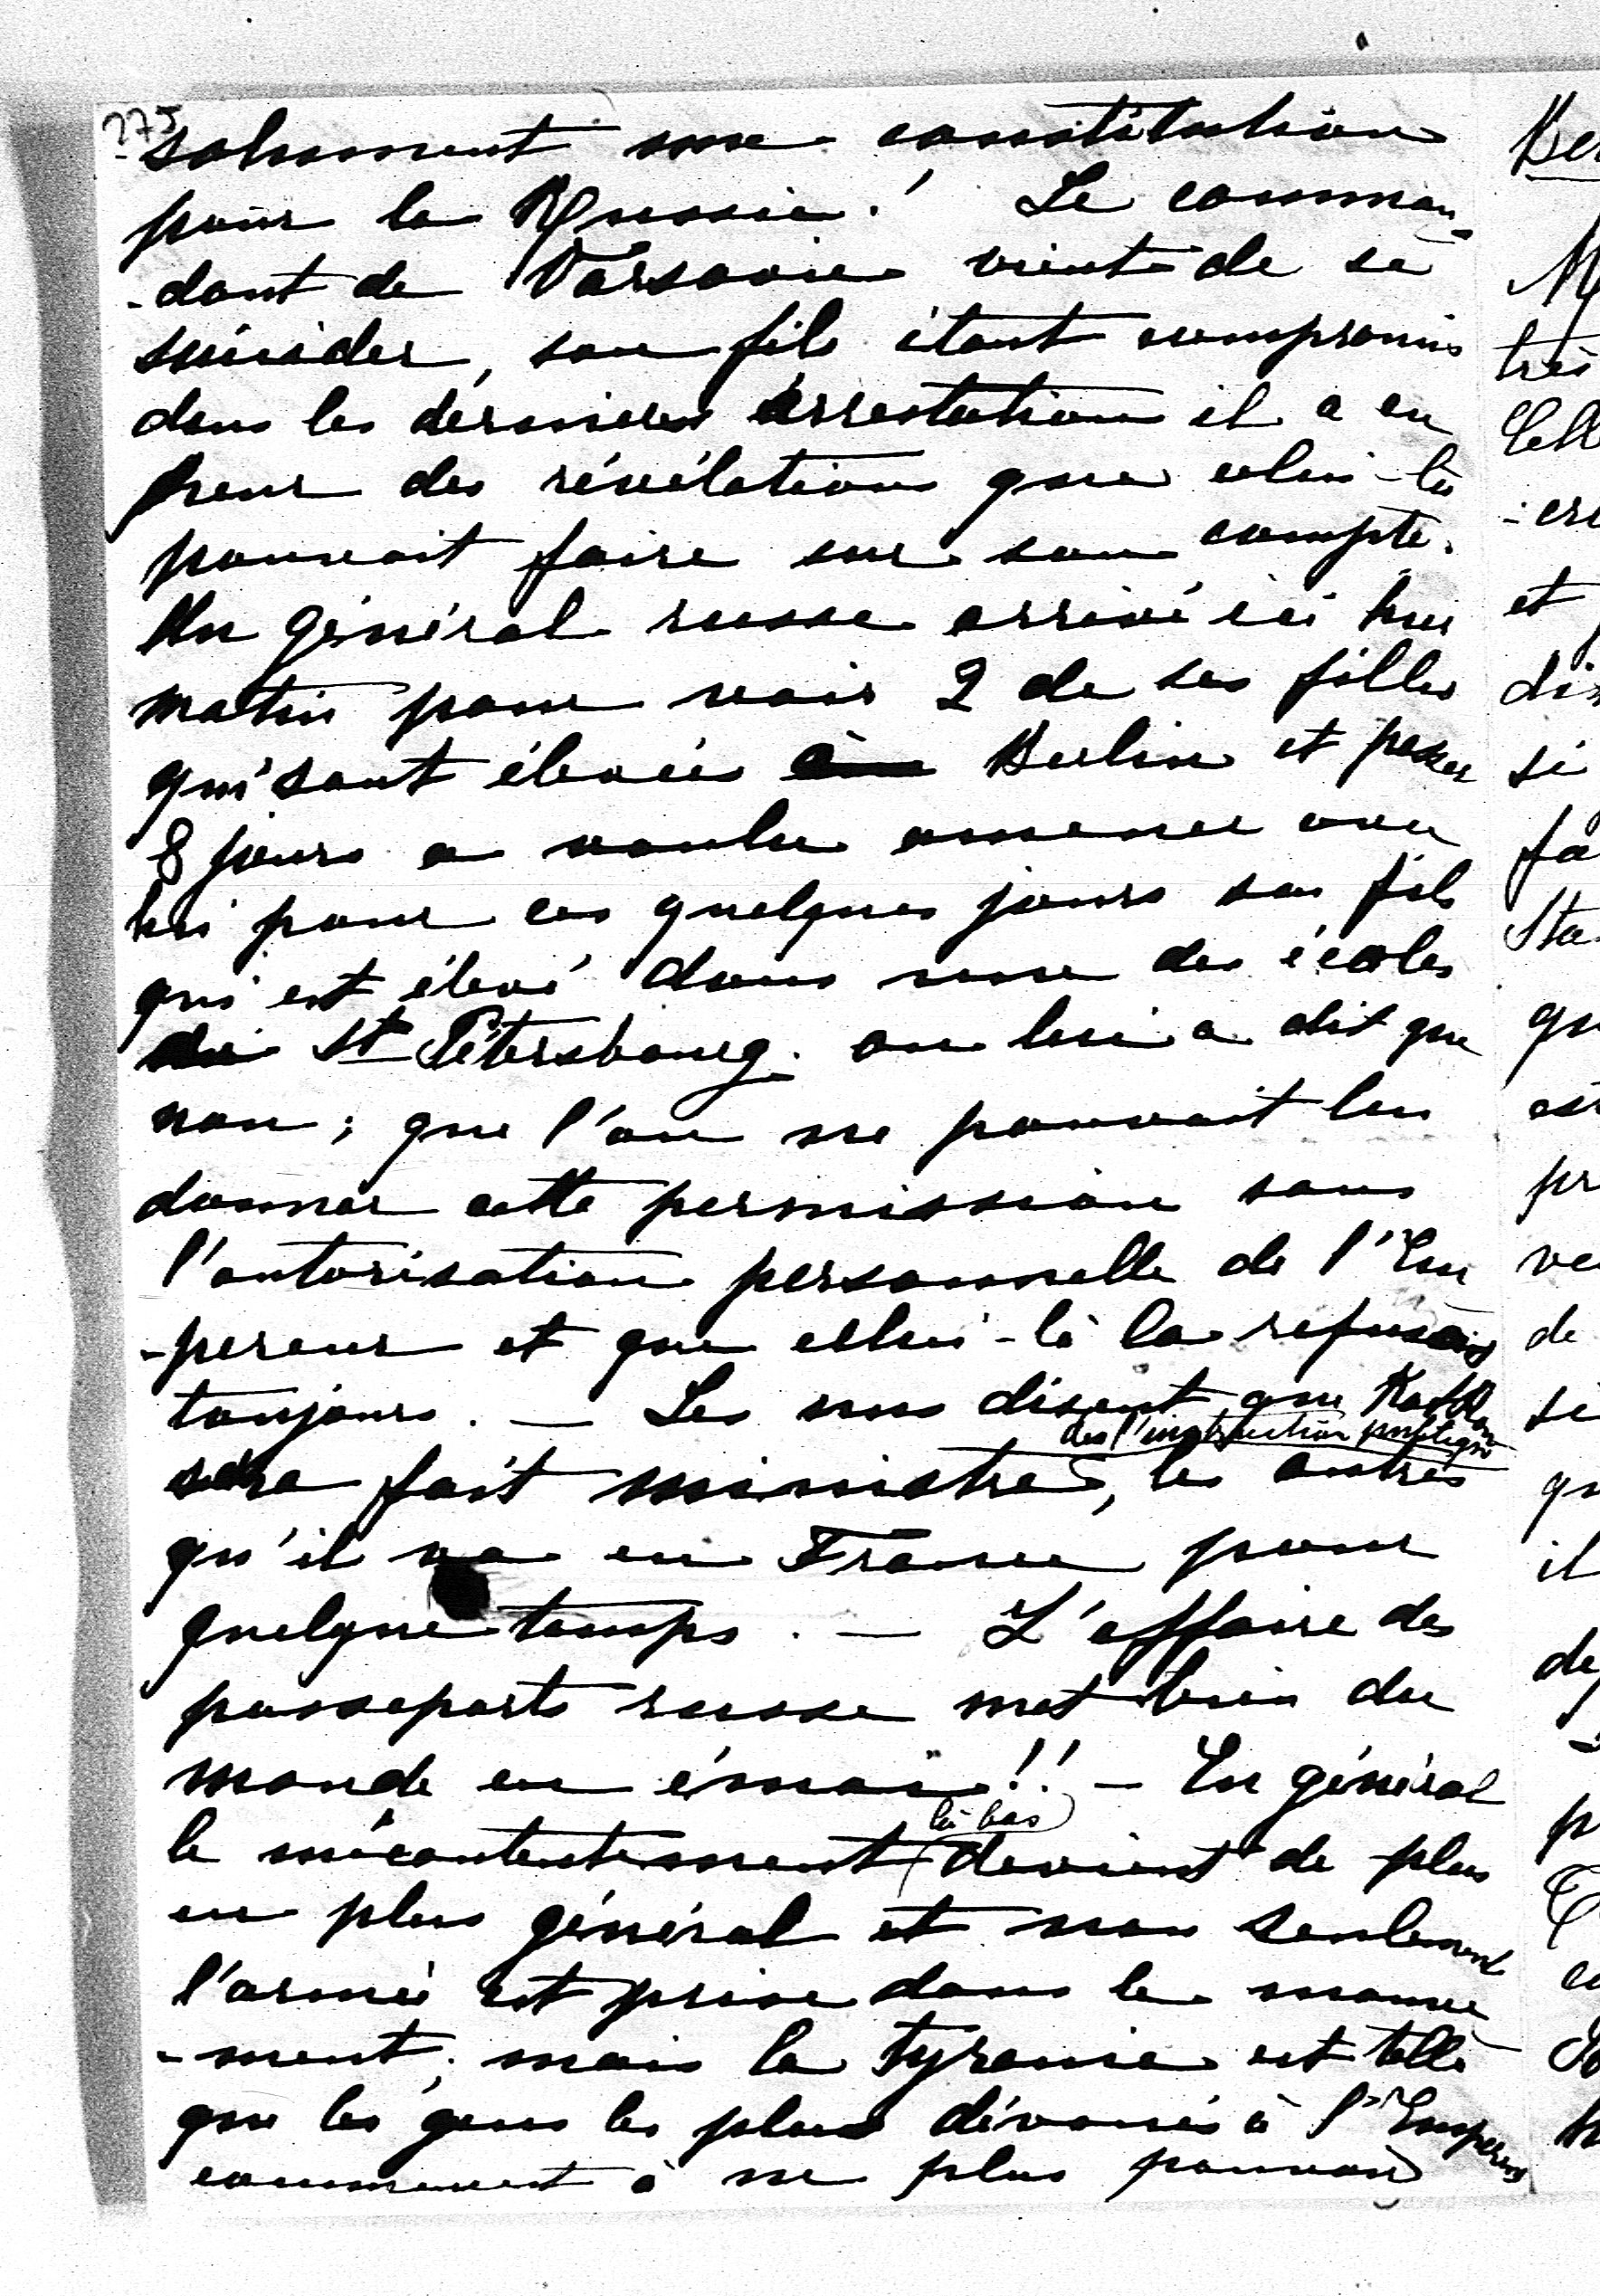 275
-solument une constitution
pour la Russie ! Le comman-
-dant de Varsovie vient de se
suicider, son fils étant compromis
dans les dernieres arrestations il a eu
peur des révélations que celui-là
pouvait faire sur son compte.
Un général russe arrivé ici hier
matin pour voir 2 de ses filles
qui sont élevées à Berlin et passer
8 jours a voulu amener avec
lui pour ces quelques jours son fils
qui est élevé dans une des écoles
de St Pétersbourg. on lui a dit que
non ; que l'on ne pouvait lui
donner cette permission sans
l'autorisation personnelle de l'Em
-pereur et que celui-là la refusait
toujours. — Les uns disent que Katkow
de l'instruction publique
sera fait ministre, les autres
qu'il va en France pour
quelque temps. — L'affaire des
passeports russe met bien du
monde en émoi !! — En général
là bas
le mécontentement devient de plus
en plus général et non seulement
l'armée est prise dans le mouve
-ment ; mais la tyranie est telle
que les gens les plus dévoués à l'Empereur
commencent à ne plus pouvoir
Ber
M
très
et
dis
si
fa
Sta
qu
est
pr
ve
de
si
qu
il
de
p